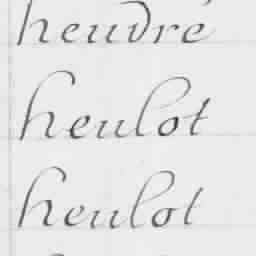 heudré
heulot
heulot